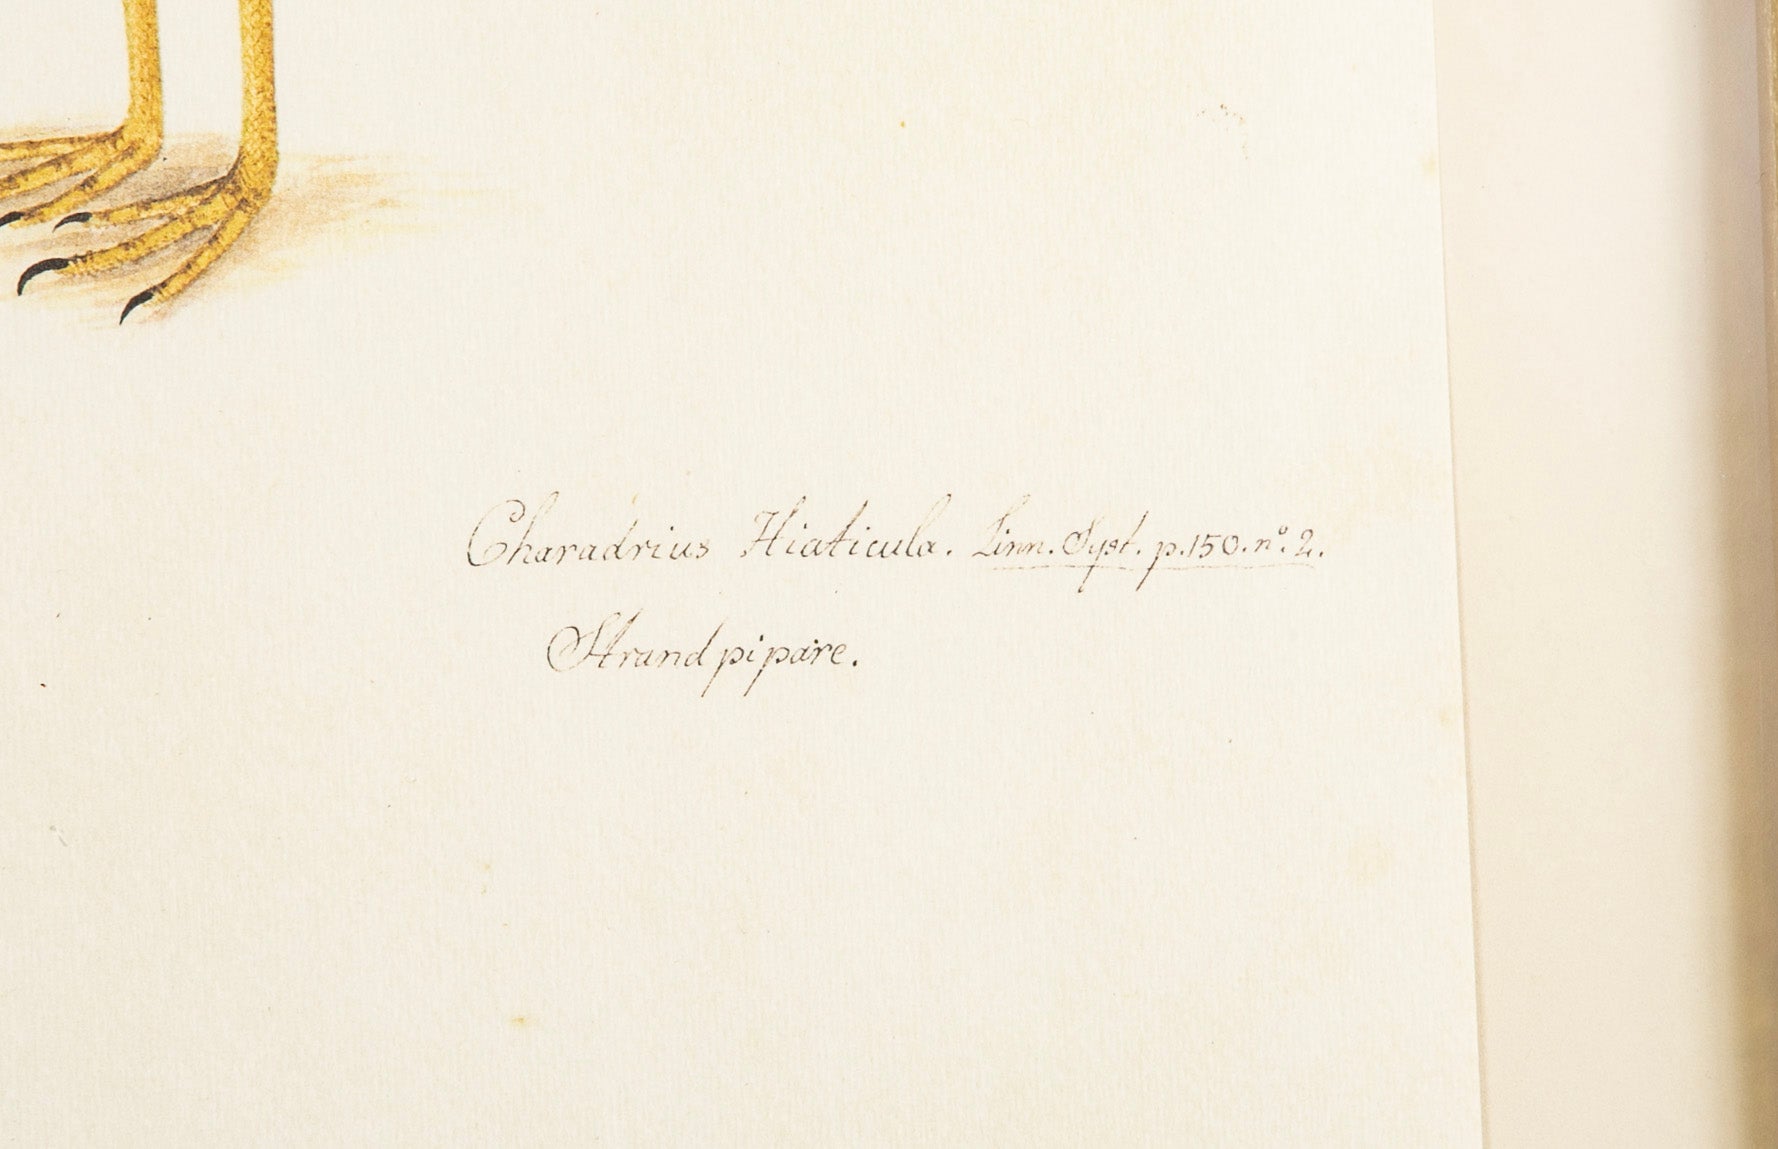 Charadrius Hiaticula. Linn. Syst. p.150. nº. 2.
Strandpipare.